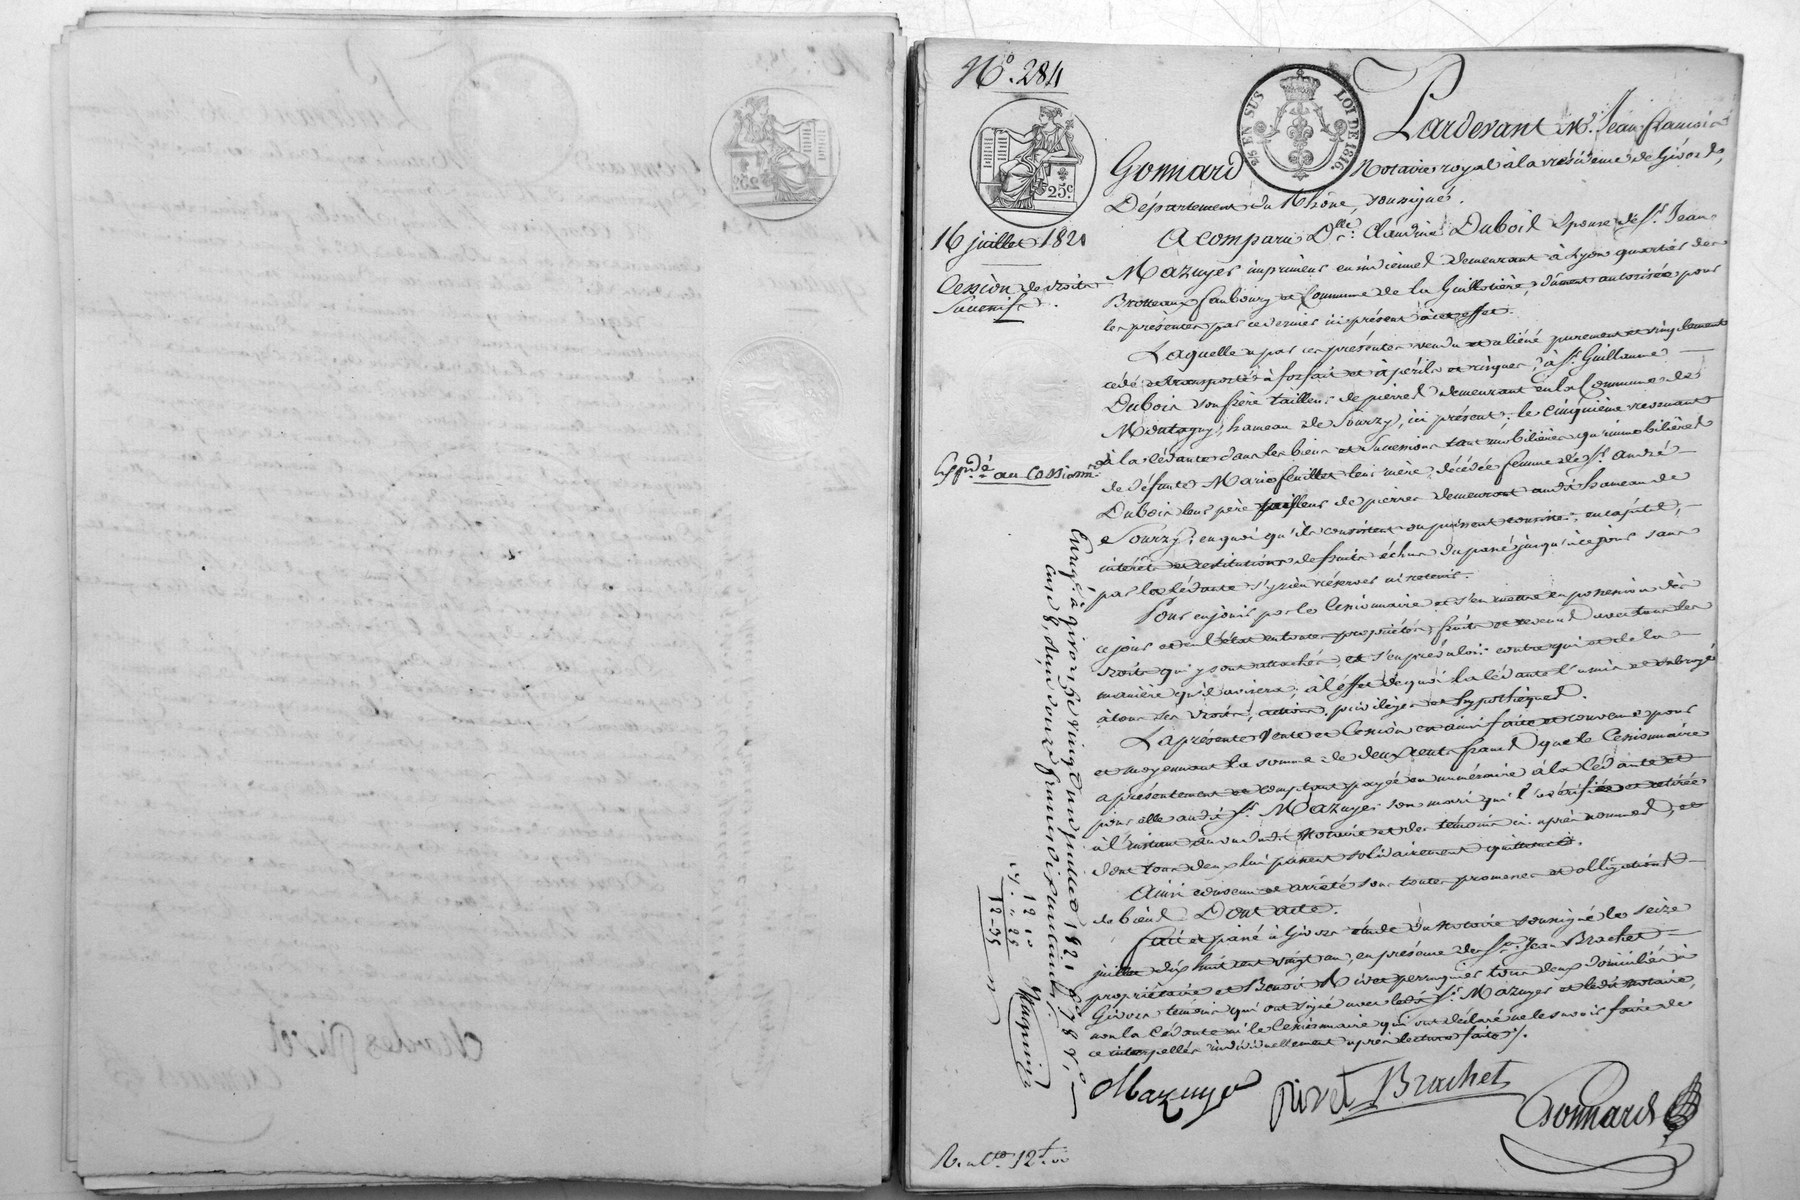 N.° 284
5/5 EN SUS LOI DE 1816.
25c.
16 juillet 1821
Cession de droits
Successifs.
Expéd.é au cessionn.re
Pardevant M.e Jean françois
Gonnard Notaire royal à la résidence de Givors,
Département du Rhône, soussigné.
A comparu D.lle Claudine Dubois Epouse de S.r Jean
Mazuyer imprimeur en indiennes demeurant à Lyon quartier des
Brotteaux faubourg et Commune de la Guillotière, dûment autorisée pour
les présentes par ce dernier ici présent à cet effet.
Laquelle a par ces présentes vendu et aliéné purement et simplement
cédé et transporté à forfait et à périls et risques, à S.r Guillaume
Dubois son frère tailleur de pierres demeurant en la Commune de
Montagny, hameau de Sourzy, ici présent; le cinquième revenant
à la cédante dans les biens et successions tant mobilières qu'immobilières
de défunte Marie feuillet leur mère, décédée femme de S.r André
Dubois leur père tailleur de pierres demeurant audit hameau de
Sourzy; en quoi qu'ils consistent ou puissent consister, en capital,
intérêts et restitutions de fruits échus du passé jusqu'à ce jour sans
par la cédante s'y rien réserver ni retenir.
Pour en jouir par le Cessionnaire et s'en mettre en possession dès
ce jour et en l'état en toutes propriétés, fruits et revenus avec tous les
droits qui y sont attachés, et s'en prévaloir contre qui et de la
manière qu'il avisera; à l'effet de quoi la cédante l'a mis et subrogé
à tous ses droits, actions, privilèges et hypothèques.
La présente Vente et Cession est ainsi faite et convenue pour
et moyennant la somme de deux cents francs que le Cessionnaire
a présentement et comptant payée en numéraire à la cédante et
pour elle audit S.r Mazuyer son mari qui l'a vérifiée et retirée
à l'instant au vu dudit Notaire et des témoins ci-après nommés, et
dont tous deux lui passent solidairement quittance.
Ainsi convenu et arrêté sous toutes promesses et obligations
de biens. Dont acte.
Fait et passé à Givors étude du Notaire soussigné le seize
juillet dix huit cent vingt un, en présence des S.rs Jean Brachet
propriétaire et Benoît Rivet perruquier tous deux domiciliés à
Givors témoins qui ont signé avec ledit S.r Mazuyer et ledit notaire,
non la Cédante ni le Cessionnaire qui ont déclaré ne le savoir faire de
ce interpellés individuellement après lecture faite.
Mazuyer rivet Brachet
Gonnard
Enreg.é à givors le vingt un juillet 1821 f.° 78 v.°
case 8, reçu douze francs dix centimes
12 10
12-95